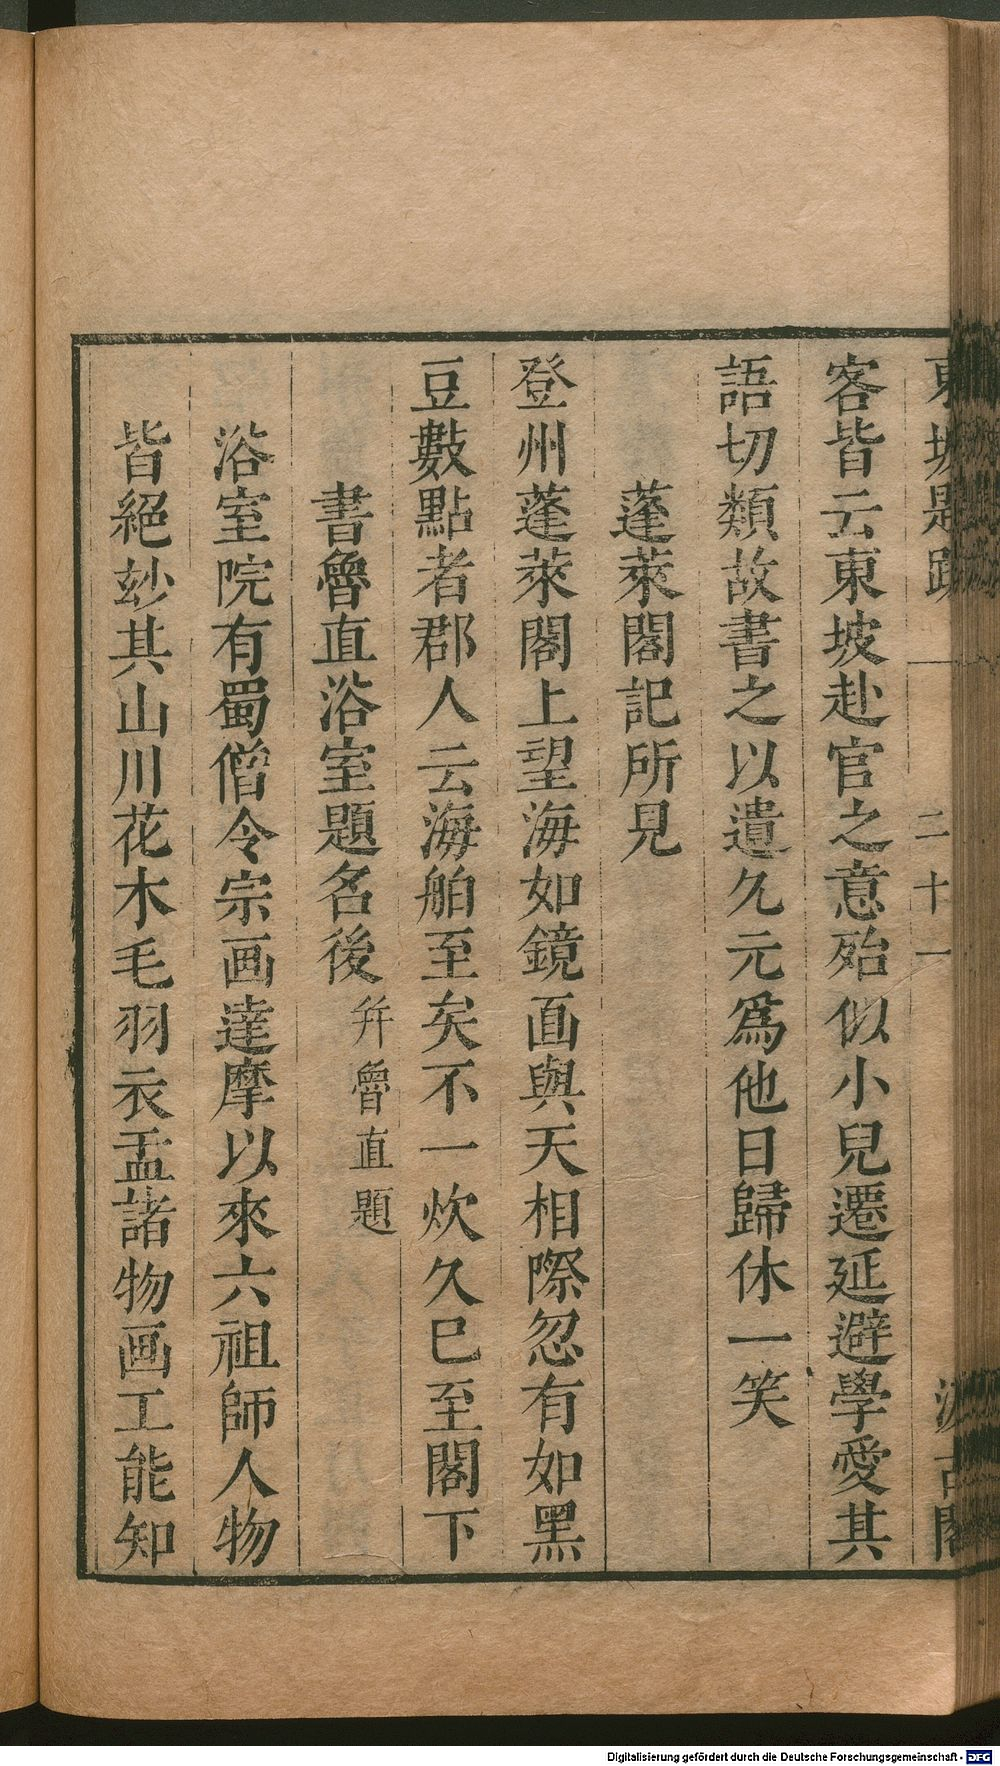 東坡題跋 一 二十一 汲古閣
客皆云東坡赴官之意殆似小兒遷延避學愛其
語切類故書之以遺久元爲他日歸休一笑
蓬萊閣記所見
登州蓬萊閣上望海如鏡面與天相際忽有如黑
豆數點者郡人云海舶至矣不一炊久已至閣下
書魯直浴室題名後 并魯直題
浴室院有蜀僧令宗画達摩以來六祖師人物
皆絕玅其山川花木毛羽衣盂諸物画工能知
Digitalisierung gefördert durch die Deutsche Forschungsgemeinschaft - DFG